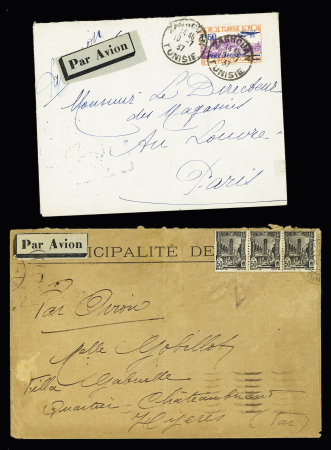 par avion
Par Avion
TUNISIE
TUNISIE
TUNISIE
Monsieur Le Directeur
des Magasins
"Au Louvre"
Paris
Par Avion
ICIPALITÉ DE
Par Avion
Melle Mobillot
Villa Gabrielle
Quartier Châteaubriand
Hyères (Var)